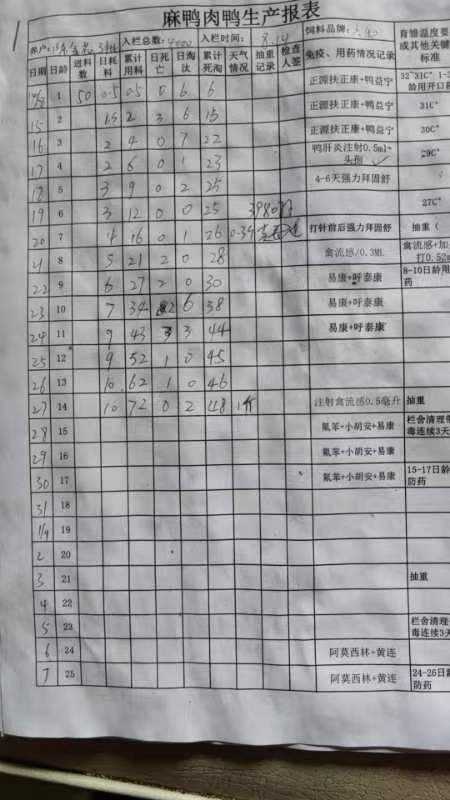 麻鸭肉鸭生产报表
养户: 入栏总数: 4000 入栏时间: 8.14 饲料品牌: 育雏温度要
日期 日龄 进料数 日耗料 累计用料 日死亡 日淘汰 累计死淘 天气情况 抽重记录 检查人签 免疫、用药情况记录 或其他关键标准
1 50 0.5 0.5 0 6 6 正源扶正康+鸭益宁 32~31C° 1-3 龄用开口药
15 2 1.5 2 3 6 15 正源扶正康+鸭益宁 31C°
16 3 2 4 0 7 22 正源扶正康+鸭益宁 30C°
17 4 2 6 0 1 23 鸭肝炎注射0.5ml- 29C°
18 5 3 9 0 2 25 4-6天强力拜固舒
19 6 3 12 0 0 25 27C°
20 7 4 16 0 1 26 打针前后强力拜固舒 抽重(
21 8 5 21 2 0 28 禽流感/0.3ML 禽流感+加 打0.52m
22 9 6 27 2 0 30 易康+呼泰康 8-10日龄用药
23 10 7 34 2 6 38 易康+呼泰康
24 11 9 43 3 3 44 易康+呼泰康
25 12 9 52 1 0 45
26 13 10 62 1 0 46
27 14 10 72 0 2 48 注射禽流感0.5毫升 抽重
28 15 氟苯+小胡安+易康 栏舍清理 毒连续3天
29 16 氟苯+小胡安+易康
30 17 氟苯+小胡安+易康 15-17日龄 防药
31 18
1/9 19
2 20
3 21 抽重
4 22
5 23 栏舍清理 毒连续3天
6 24 阿莫西林+黄连
7 25 阿莫西林+黄连 24-26日龄 防药